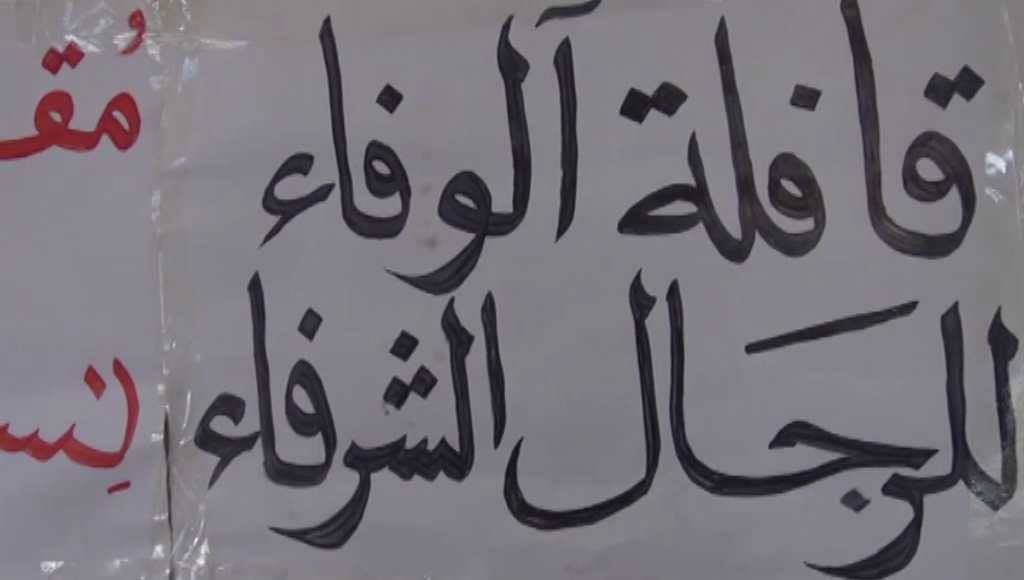 قافلة آلوفاء
للرجال الشرفاء